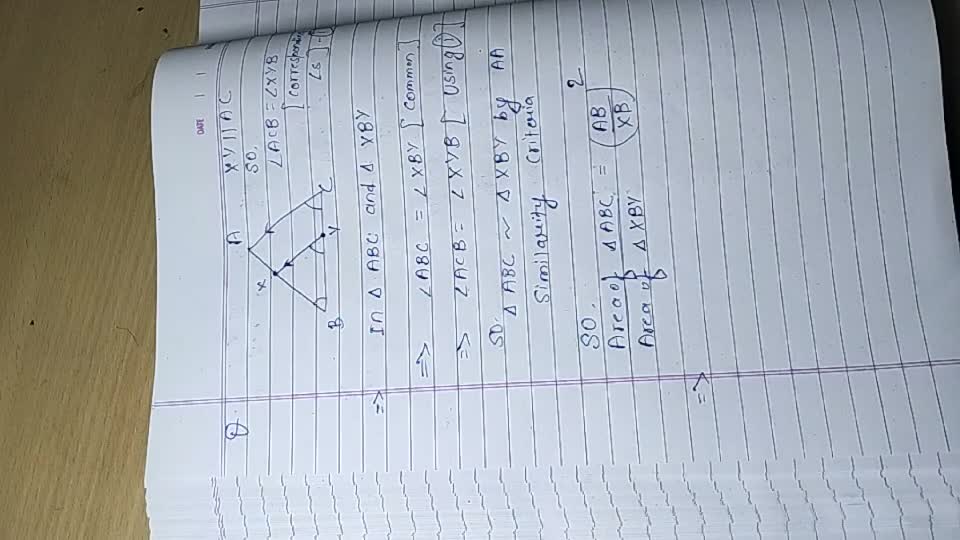 DATE
Q.
A
X
B
Y
C
XY || AC
SO,
∠ACB = ∠XYB
[Correspondin
∠s] -(1
=> In Δ ABC and Δ XBY
=> ∠ABC = ∠XBY [Common]
=> ∠ACB = ∠XYB [Using (i)]
SO,
Δ ABC ~ Δ XBY by AA
Similarity Criteria
SO,
Area of Δ ABC / Area of Δ XBY = (AB / XB)²
=>